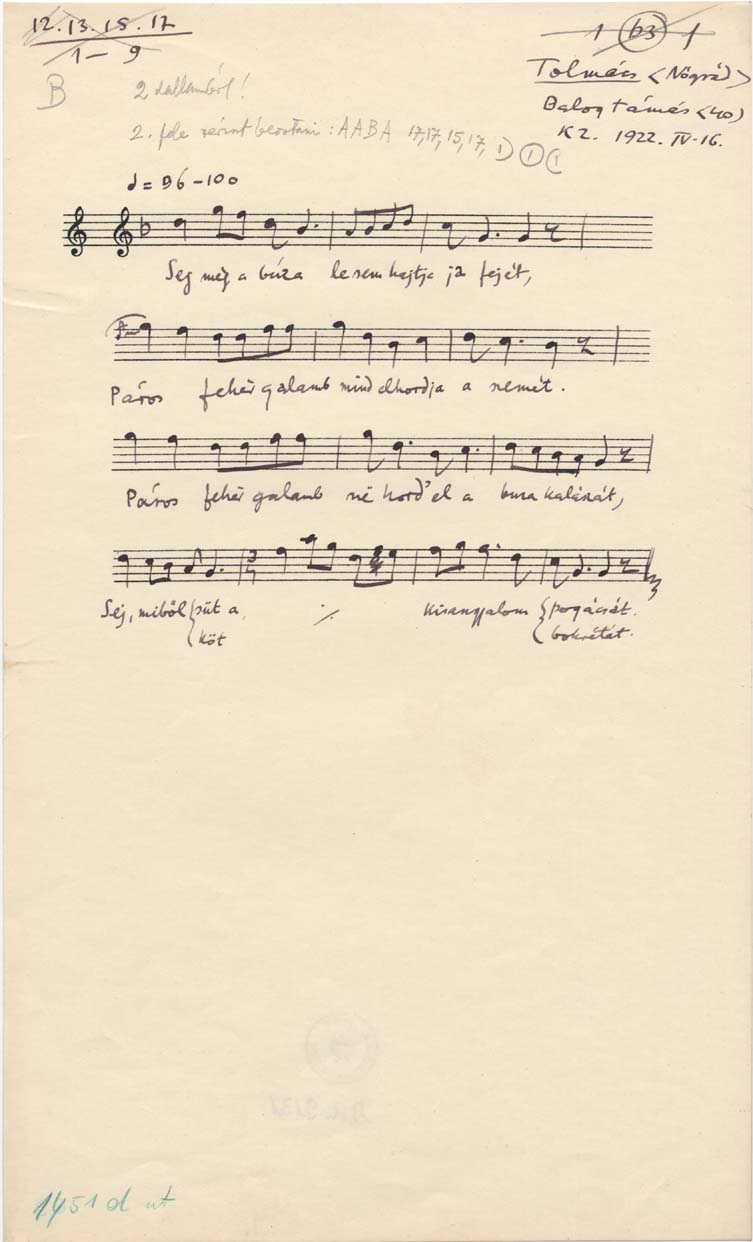 12. 13. 15. 17
1 – 9
1 b3 1
Tolmács <Nógrád>
Balog Tamás <40>
KZ. 1922. IV-16.
B
2 dallamból!
2. fele szerint beosztani: AABA 17, 17, 15, 17, 1) ① (1
♩ = 96 – 100
Sej még a búza le sem hajtja ja fejét,
Páros fehér galamb mind elhordja a nemét.
Páros fehér galamb né hord' el a buza kalászát,
Sej, miből { süt a ·/. kisangyalom { pogácsát.
köt bokrétát.
1451 d